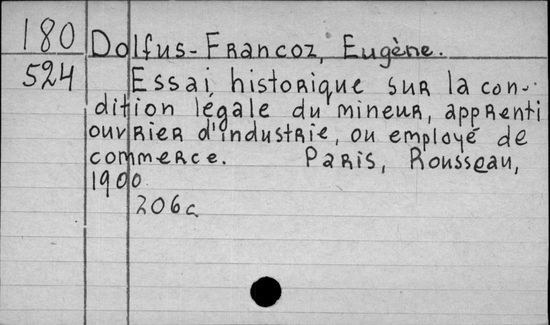 180 Dolfus-Francoz, Eugène.
524 Essai historique sur la con-
dition légale du mineur, apprenti
ouvrier d'industrie, ou employé de
commerce. Paris, Rousseau,
1900
206c